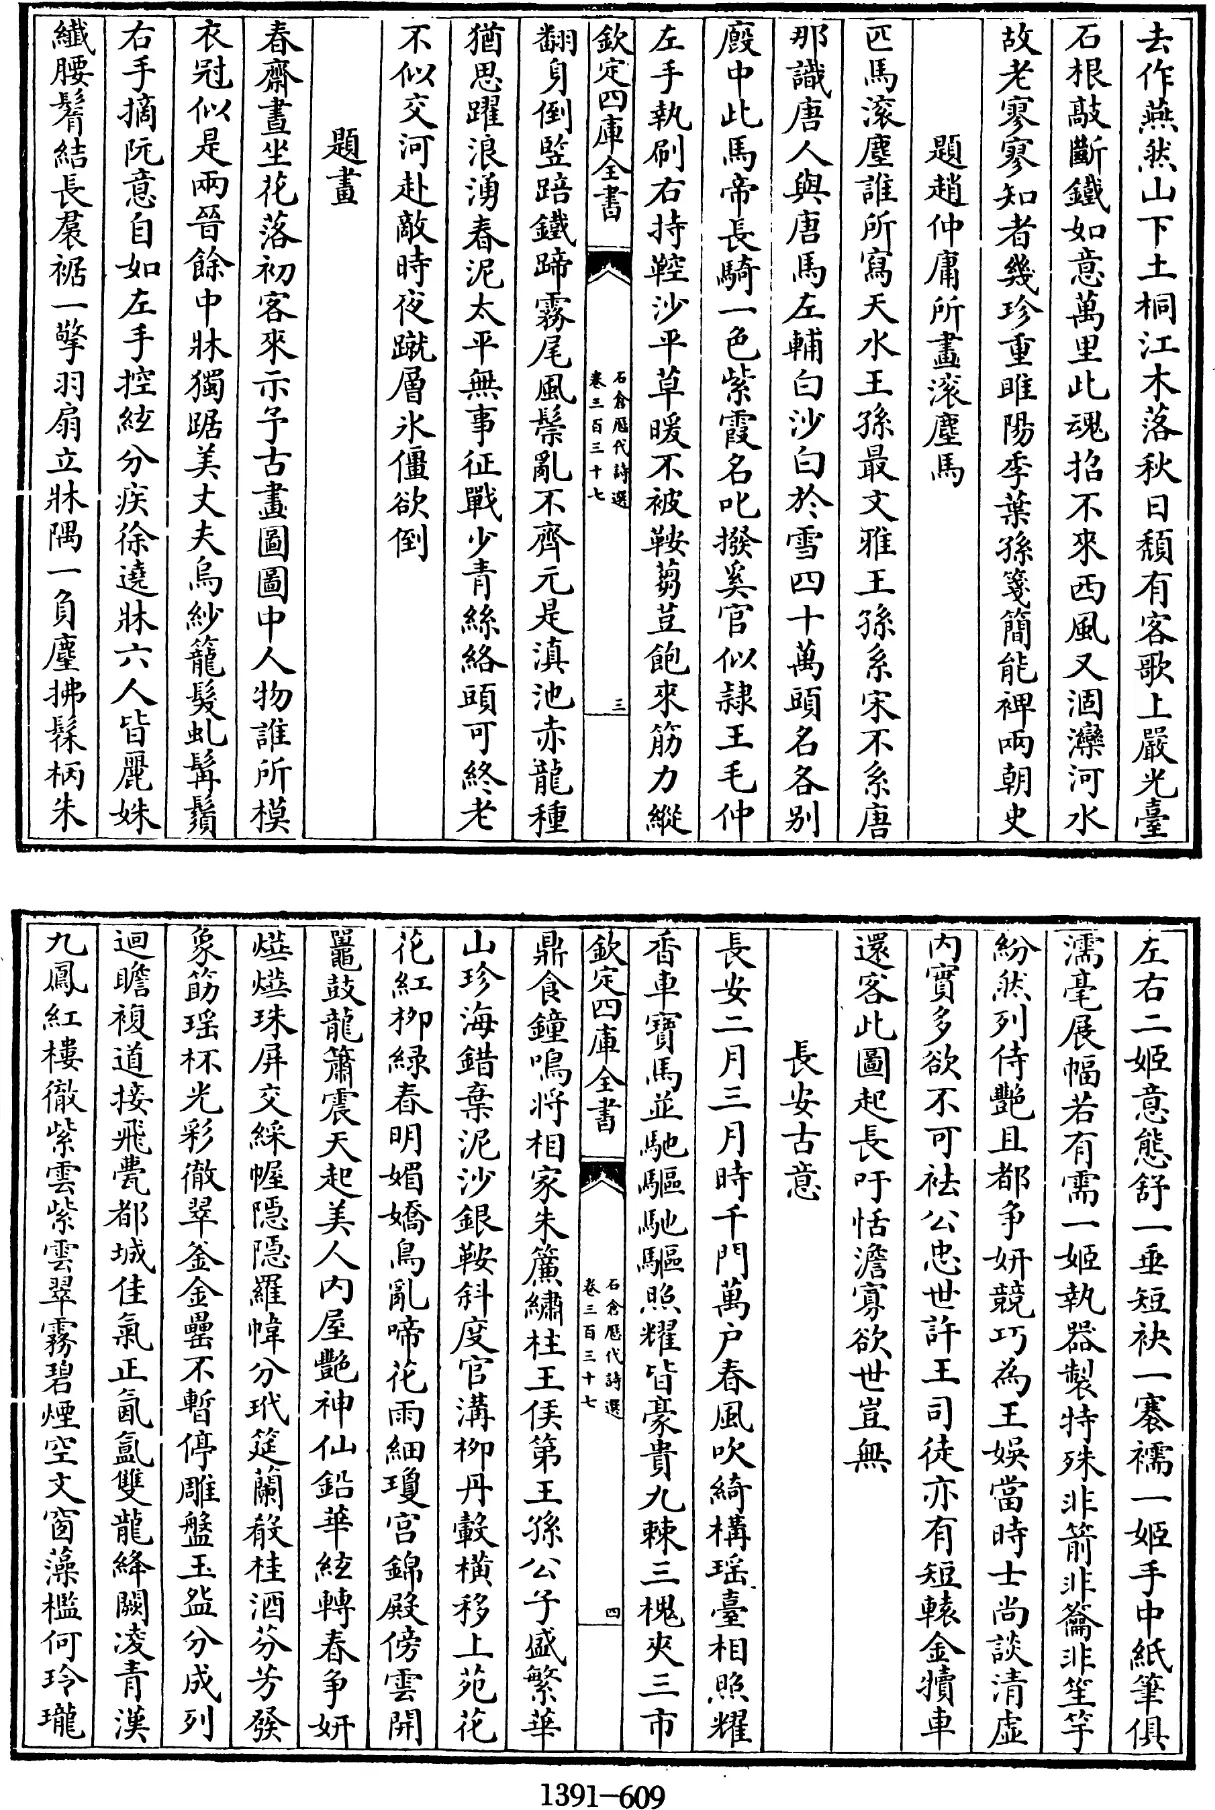 去作燕然山下土桐江木落秋日頹有客歌上嚴光臺
石根敲斷鐵如意萬里此魂招不來西風又涸灤河水
故老寥寥知者幾珍重睢陽季葉孫箋簡能裨兩朝史
題趙仲庸所畫滚塵馬
匹馬滚塵誰所寫天水王孫最文雅王孫系宋不系唐
那識唐人與唐馬左輔白沙白於雪四十萬頭名各别
廐中此馬帝長騎一色紫霞名叱撥奚官似隷王毛仲
左手執刷右持鞚沙平草暖不被鞍蒭荳飽來筋力縱
欽定四庫全書
石倉歷代詩選
卷三百三十七
三
翻身倒豎踣鐵蹄霧尾風鬃亂不齊元是滇池赤龍種
猶思躍浪湧春泥太平無事征戰少青絲絡頭可終老
不似交河赴敵時夜蹴層氷僵欲倒
題畫
春齋晝坐花落初客來示予古畫圖圖中人物誰所模
衣冠似是兩晉餘中牀獨踞美丈夫烏紗籠髮虬髯鬚
右手摘阮意自如左手控絃分疾徐遶牀六人皆麗姝
纖腰鬌結長裠裾一擎羽扇立牀隅一負麈拂髹柄朱
左右二姬意態舒一垂短袂一褰襦一姬手中紙筆俱
濡毫展幅若有需一姬執器製特殊非箭非籥非笙竽
紛然列侍艷且都争妍競巧為王娱當時士尚談清虚
内實多欲不可袪公忠世許王司徒亦有短轅金犢車
還客此圖起長吁恬澹寡欲世豈無
長安古意
長安二月三月時千門萬户春風吹綺構瑶臺相照耀
香車寶馬並馳驅馳驅照耀皆豪貴九棘三槐夾三市
欽定四庫全書
石倉歷代詩選
卷三百三十七
四
鼎食鐘鳴将相家朱簾繡柱王侯第王孫公子盛繁華
山珍海錯棄泥沙銀鞍斜度官溝柳丹轂横移上苑花
花紅柳緑春明媚嬌鳥亂啼花雨細瓊宫錦殿傍雲開
鼉鼓龍簫震天起美人内屋艷神仙鉛華絃轉春争妍
熒熒珠屏交綵幄隠隠羅幃分玳筵蘭殽桂酒芬芳發
象筯瑶杯光彩徹翠釜金罍不暫停雕盤玉㿽分成列
迴瞻複道接飛甍都城佳氣正氤氲雙龍絳闕凌青漢
九鳳紅樓徹紫雲紫雲翠霧碧煙空文窗藻檻何玲瓏
1391-609